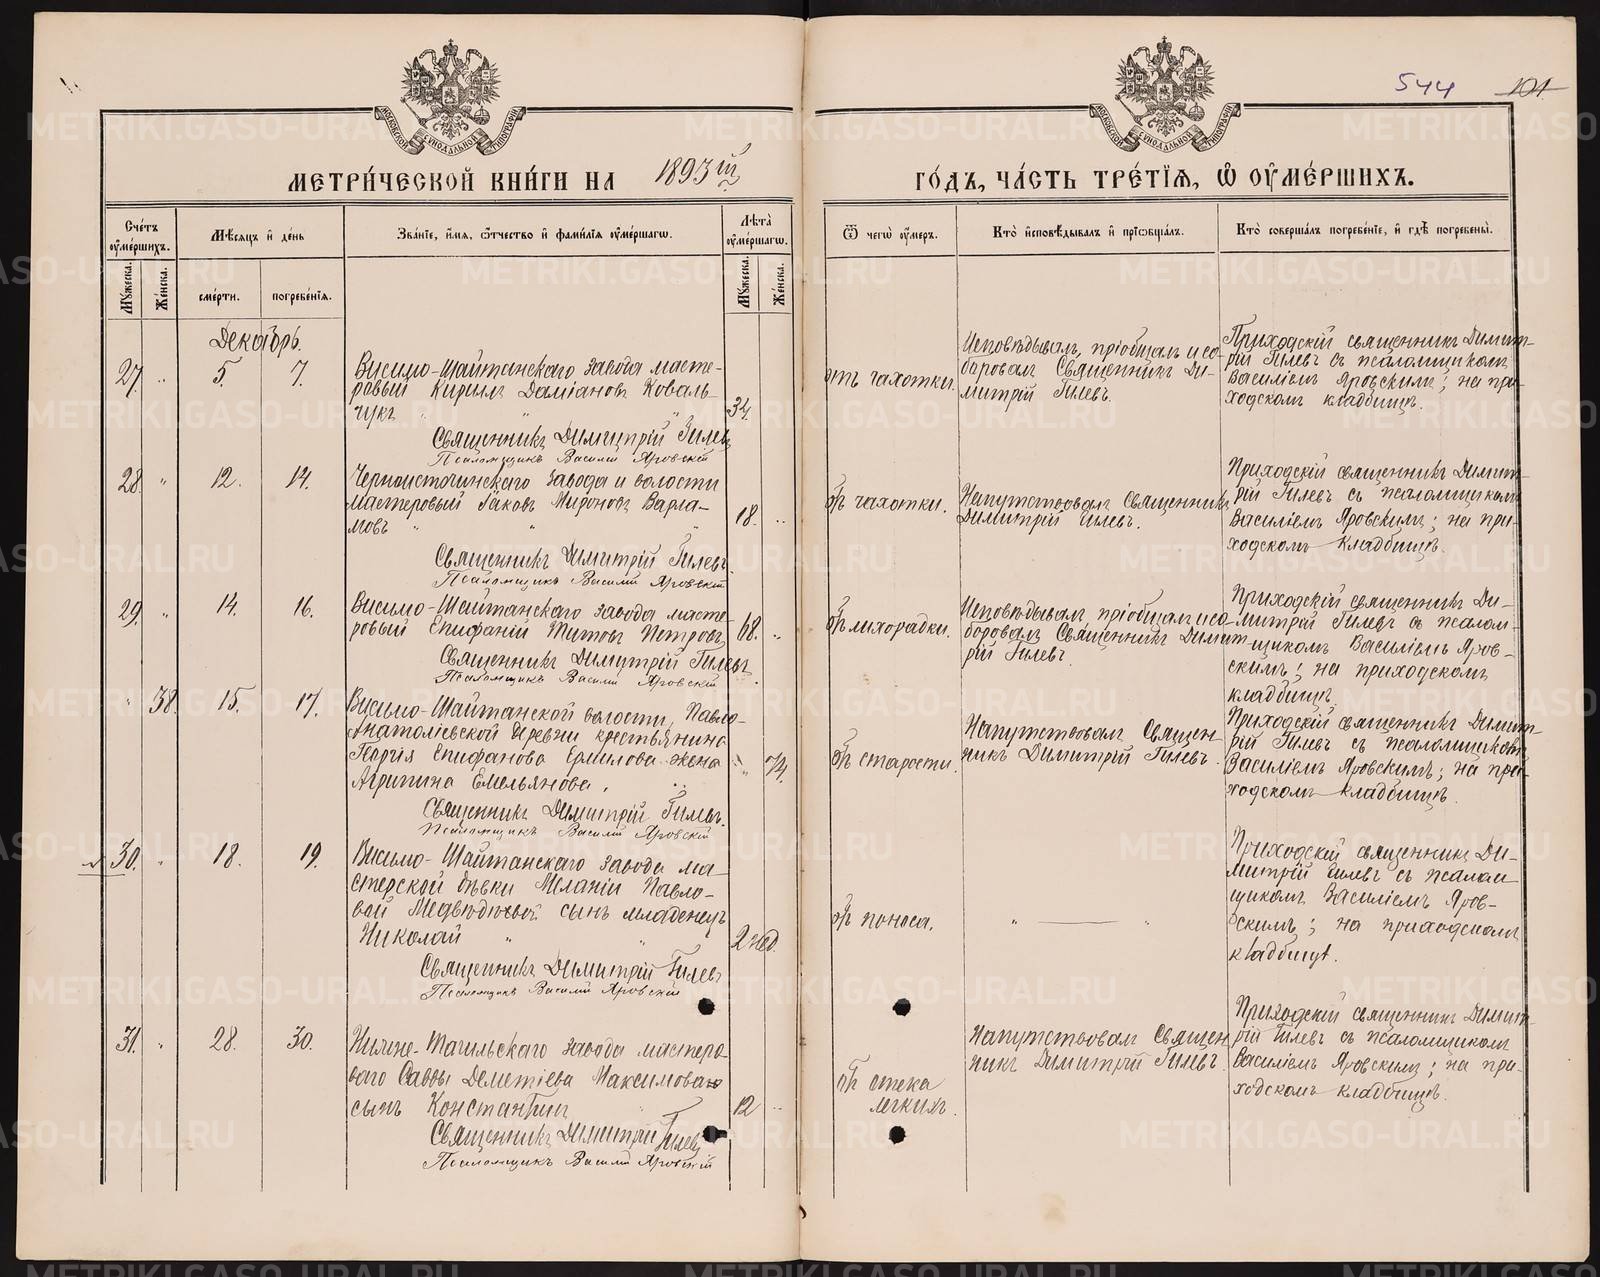 544 101.
МОСКОВСКОЙ СѴНОДАЛЬНОЙ ТИПОГРАФІИ
МОСКОВСКОЙ СѴНОДАЛЬНОЙ ТИПОГРАФІИ
МЕТРИ́ЧЕСКОЙ КНИ́ГИ НА 1893й
ГО́ДЪ, ЧА́СТЬ ТРЕ́ТІѦ, Ѽ ОУМЕ́РШИХЪ.
Сче́тъ оумершихъ.
Мужеска.
Же́нска.
Мѣ́сѧцъ и де́нь
сме́рти.
погребе́нїѧ.
Зва́нїе, и́мѧ, ѻ҆́тчество и фами́лїѧ оуме́ршагѡ.
Лѣта̀ оуме́ршагѡ.
Мужеска.
Же́нска.
Ѿ чегѡ̀ оу́меръ.
Кто̀ и҆сповѣ́дывалъ и прїѡбща́лъ.
Кто̀ соверша́лъ погребе́нїе, и гдѣ̀ погребены̀.
Декабрь.
27. " 5. 7.
Висимо-Шайтанскаго завода масте-
ровый Кирилъ Даміановъ Коваль-
чукъ " "
34.
Священникъ Димитрій Гилевъ
Псаломщикъ Василій Яровскій
отъ чахотки.
Исповѣдывалъ, пріобщалъ и со-
боровалъ Священникъ Ди-
митрій Гилевъ.
Приходскій священникъ Димит-
рій Гилевъ съ псаломщикомъ
Василіемъ Яровскимъ; на при-
ходскомъ кладбищѣ.
28. " 12. 14.
Черноисточинскаго завода и волости
мастеровый Іаковъ Миронов Варла-
мовъ " "
18. "
Священникъ Димитрій Гилевъ.
Псаломщикъ Василій Яровскій
отъ чахотки.
Напутствовалъ Священникъ
Димитрій Гилевъ.
Приходскій священникъ Димит-
рій Гилевъ съ псаломщикомъ
Василіемъ Яровскимъ; на при-
ходскомъ кладбищѣ.
29. " 14. 16.
Висимо-Шайтанскаго завода масте-
ровый Епифаній Титовъ Петровъ
68. "
Священникъ Димитрій Гилевъ
Псаломщикъ Василій Яровскій
отъ лихорадки.
Исповѣдывалъ, пріобщалъ и со-
боровалъ Священникъ Димит-
рій Гилевъ.
Приходскій священникъ Ди-
митрій Гилевъ съ псалом-
щикомъ Василіемъ Яров-
скимъ; на приходскомъ
кладбищѣ.
" 38. 15. 17.
Висимо-Шайтанской волости, Павло-
Анатоліевской деревни крестьянина
Георгія Епифанова Ермилова жена
Агрипина Емельянова.
" 74.
Священникъ Димитрій Гилевъ.
Псаломщикъ Василій Яровскій
отъ старости.
Напутствовалъ Священ-
никъ Димитрій Гилевъ.
Приходскій священникъ Димит-
рій Гилевъ съ псаломщикомъ
Василіемъ Яровскимъ; на при-
ходскомъ кладбищѣ.
30. " 18. 19.
Висимо-Шайтанскаго завода ма-
стерской дѣвки Меланіи Павло-
вой Медвѣдювой сынъ младенецъ
Николай " "
2 нед.
Священникъ Димитрій Гилевъ
Псаломщикъ Василій Яровскій
отъ поноса.
" — "
Приходскій священникъ Ди-
митрій Гилевъ съ псалом
щикомъ Василіемъ Яров-
скимъ; на приходскомъ
кладбищѣ.
31. " 28. 30.
Нижне-Тагильскаго завода мастеро-
ваго Саввы Деметіева Максимоваго
сынъ Константинъ
12 "
Священникъ Димитрій Гилевъ
Псаломщикъ Василій Яровскій
отъ отека
легкихъ.
Напутствовалъ Священ
никъ Димитрій Гилевъ.
Приходскій священникъ Димит-
рій Гилевъ съ псаломщикомъ
Василіемъ Яровскимъ; на при-
ходскомъ кладбищѣ.
METRIKI.GASO-URAL.RU